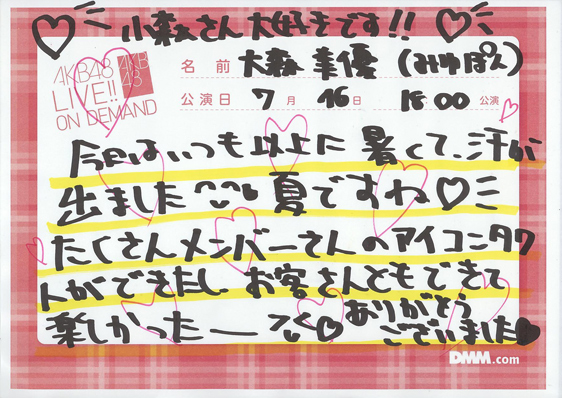 小森さん大好きです!!
AKB48
LIVE!!
ON DEMAND
AKB
48
名前 大森美優 (みゆぽん)
公演日 7月 16日 18:00 公演
今日はいつも以上に暑くて、汗が
出ました 夏ですね♡
たくさんメンバーさんのアイコンタク
トができたし お客さんともできて
楽しかったー
ありがとう
ございました♥
DMM.com